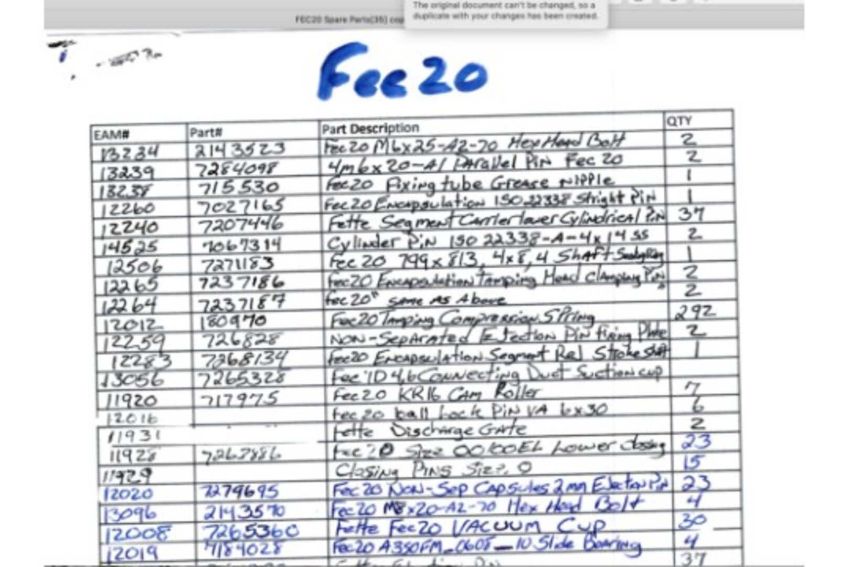 The original document can't be changed, so a
duplicate with your changes has been created.
FEC20 Spare Parts(35) cop
Fec 20
EAM# Part# Part Description QTY
13234 2143523 Fec20 M6x25-A2-70 Hex Head Bolt 2
13239 7284098 4m6x20-A1 Parallel Pin Fec 20 2
13238 715530 Fec20 Fixing tube Grease NIPPLE 1
12260 7027165 Fec20 Encapsulation ISO 22338 Stright Pin 1
12240 7207446 Fette Segment Carrier lower Cylindrical Pin 37
14525 7067314 Cylinder Pin ISO 22338-A-4x14 SS 2
12506 7271183 Fec 20 799x813, 4x8,4 Shaft Sealing Ring 1
12265 7237186 Fec20 Encapsulation Tamping Head Clamping Pin 2
12264 7237187 Fec20" Same As Above 2
12012 180970 Fec20 Tamping Compression Spring 292
12259 726828 NON-Separated Ejection Pin fixing Plate 2
12283 7268134 Fec20 Encapsulation Segment Rej Stroke Shft 1
13056 7265328 Fec ID 4,6 Connecting Duct Suction cup
11920 717975 Fec20 KR16 Cam Roller 7
12016 Fec 20 ball Lock Pin VA 6x30 6
11931 Fette Discharge Gate 2
11928 7267886 Fec20 Size 00/00EL Lower closing 23
11929 Closing Pins Size, 0 15
12020 7279695 Fec20 Non-Sep Capsules 2mm Ejection Pin 23
13096 2143570 Fec20 M8x20-A2-70 Hex Head Bolt 4
12008 7265360 Fette Fec20 VACUUM Cup 30
12019 7184028 Fec20 A350FM-0608-10 Slide Bearing 4
37